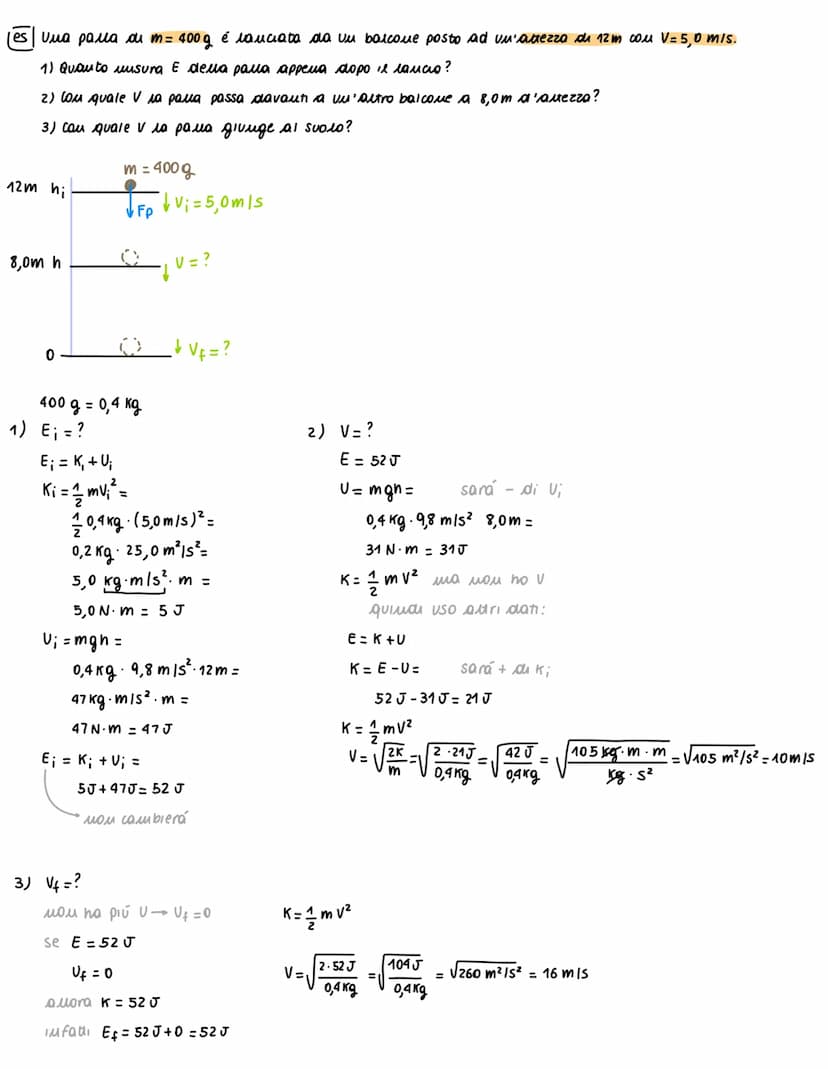 es Una palla di m= 400g é lanciata da un balcone posto ad un'altezza di 12m con V=5,0 m/s.
1) Quanto misura E della palla appena dopo il lancio?
2) Con quale V la palla passa davanti a un'altro balcone a 8,0m d'altezza?
3) Con quale V la palla giunge al suolo?
m = 400g
12m hᵢ
Fp
Vᵢ = 5,0m/s
8,0m h
V = ?
0
V_f = ?
400 g = 0,4 Kg
1) Eᵢ = ?
Eᵢ = Kᵢ + Uᵢ
Kᵢ = 1/2 mVᵢ² =
1/2 0,4Kg · (5,0m/s)² =
0,2 Kg · 25,0 m²/s² =
5,0 kg·m/s² · m =
5,0 N·m = 5 J
Uᵢ = mgh =
0,4 Kg · 9,8 m/s² · 12m =
47 Kg · m/s² · m =
47 N·m = 47 J
Eᵢ = Kᵢ + Uᵢ =
5J + 47J = 52 J
non cambierá
2) V = ?
E = 52 J
U = mgh = sará - di Uᵢ
0,4 Kg · 9,8 m/s² 8,0m =
31 N·m = 31J
K = 1/2 m V² ma non ho V
quindi uso altri dati:
E = K + U
K = E - U = sará + di Kᵢ
52 J - 31 J = 21 J
K = 1/2 mV²
V = √(2K/m) = √(2 · 21J/0,4Kg) = √(42 J/0,4Kg) = √(105 kg · m · m/kg · s²) = √105 m²/s² = 10m/s
3) V_f = ?
non ha più U → U_f = 0
se E = 52 J
U_f = 0
allora K = 52 J
infatti E_f = 52 J + 0 = 52 J
K = 1/2 m V²
V = √(2 · 52 J/0,4Kg) = √(104 J/0,4Kg) = √260 m²/s² = 16 m/s